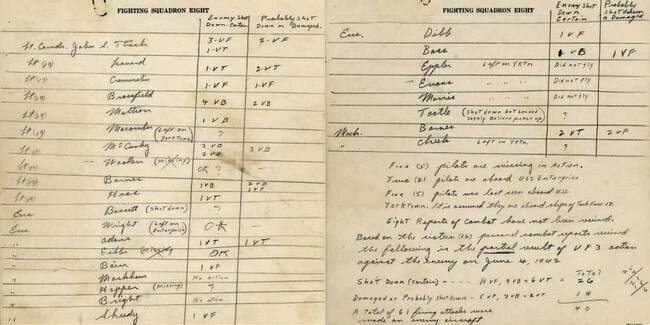 FIGHTING SQUADRON EIGHT
Enemy Shot Down. Certain
Probably Shot Down or Damaged.
Lt. Comdr. John S. Thach 3-VF 2-VF
1-VT
Lt (jg) Leonard 1-VT 2-VT
Lt (jg) Crommelin 1-VF 1-VF
Lt (jg) Brassfield 4 VB 2 VB
Lt (jg) Mattson 1 VB
Lt (jg) Macomber (Left on Yorktown) ?
Lt (jg) McCuskey 3 VB
Lt (jg) Woollen (missing) OK ? -
Lt (jg) Barnes 1 VB 2 VB
1 VF
Lt (jg) Haas 1 VT
Ens Bassett (shot down) ?
Ens Wright (Left on Enterprise) OK -
" Adams 1 VT 1 VT
" Gibbs (missing) OK
" Bain 1 VF
" Markham No action
" Hopper (missing) ?
" Bright No action
" Sheedy 1 VF
FIGHTING SQUADRON EIGHT
Enemy Shot Down Certain
Probably Shot down or Damaged
Ens. Dibb 1 VF
Bass 1 VB 1 VF
Eppler Left on YKTn Did not fly
Evans " " " Did not fly
Morris Did not fly
Tootle (Shot down but landed safely believe picked up) ?
Mach. Barnes 2 VT 2 VF
" Cheek Left in YKTn ?
Five (5) pilots are missing in action.
Two (2) pilots are aboard USS Enterprise
Five (5) pilots was last seen aboard USS
Yorktown. It is assumed they are aboard ships of Task Force 17.
Eight Reports of Combat have not been received.
Based on the sixteen (16) personal combat reports received
the following is the partial result of VF 3 action
against the enemy on June 4, 1942
Total
Shot Down (certain) - - - 11 VF, 9 VB & 6 VT = 26
Damaged or Probably Shot down - 5 VF, 7 VB & 2 VT = 14
40
A total of 61 firing attacks were
made on enemy aircraft